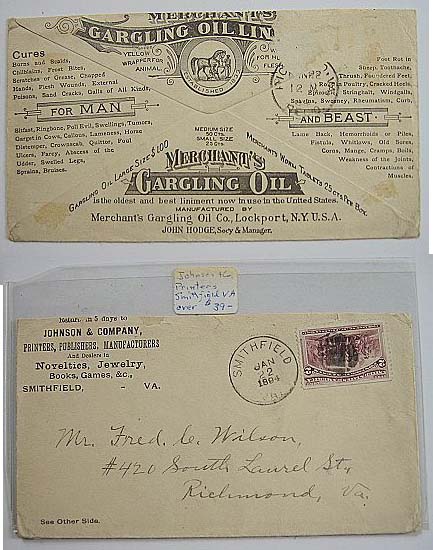 MERCHANT'S
GARGLING OIL LIN
YELLOW
WRAPPER FOR
ANIMAL
ESTABLISHED
Cures
Burns and Scalds,
Chilblains, Frost Bites,
Scratches or Grease, Chapped
Hands, Flesh Wounds, External
Poisons, Sand Cracks, Galls of All Kinds,
FOR MAN
Sitfast, Ringbone, Poll Evil, Swellings, Tumors,
Garget in Cows, Callous, Lameness, Horse
Distemper, Crownscab, Quittor, Foul
Ulcers, Farcy, Abscess of the
Udder, Swelled Legs,
Sprains, Bruises.
Foot Rot in
Sheep, Toothache,
Thrush, Foundered Feet,
in Poultry, Cracked Heels,
Stringhalt, Windgalls,
Spavins, Sweeney, Rheumatism, Curb,
AND BEAST
Lame Back, Hemorrhoids or Piles,
Fistula, Whitlows, Old Sores,
Corns, Mange, Cramps, Boils,
Weakness of the Joints,
Contractions of
Muscles.
MEDIUM SIZE
50 Cts.
SMALL SIZE
25 Cts.
GARGLING OIL LARGE SIZE $1.00
MERCHANT'S WORM TABLETS 25 CTS PER BOX.
MERCHANT'S
GARGLING OIL
is the oldest and best liniment now in use in the United States.
MANUFACTURED BY
Merchant's Gargling Oil Co., Lockport, N.Y. U.S.A.
JOHN HODGE, Secy & Manager.
Johnson & Co
Printers
Smithfield VA
cover $39-
Return in 5 days to
JOHNSON & COMPANY,
PRINTERS, PUBLISHERS, MANUFACTURERS
And Dealers in
Novelties, Jewelry,
Books, Games, &c.,
SMITHFIELD, - VA.
SMITHFIELD
JAN
2
1894
VA.
Mr. Fred. C. Wilson,
#420 South Laurel St.,
Richmond, Va.
See Other Side.